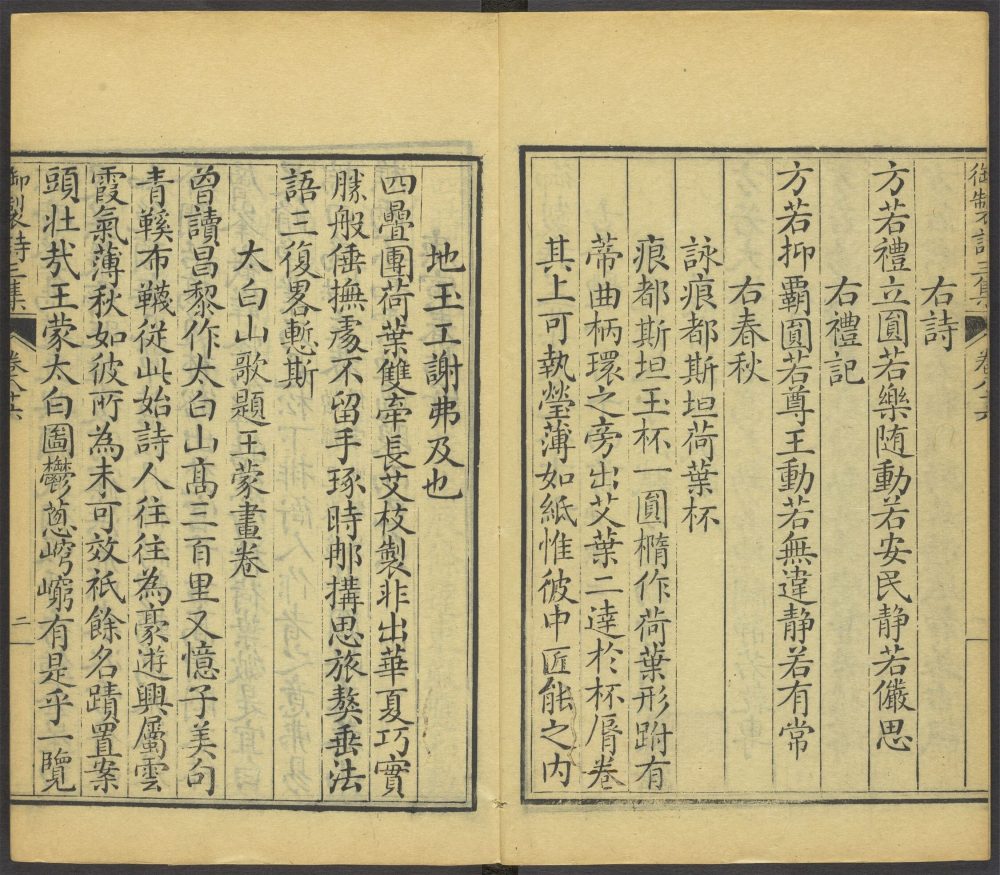 御製詩三集
卷八十六
右詩
方若禮立圓若樂随動若安民静若儼思
右禮記
方若抑覇圓若尊王動若無違静若有常
右春秋
詠痕都斯坦荷葉杯
痕都斯坦玉杯一圓橢作荷葉形跗有
蒂曲柄環之旁出艾葉二達於杯脣卷
其上可執瑩薄如紙惟彼中匠能之内
地玉工謝弗及也
四疊團荷葉雙牽長艾枝製非出華夏巧實
勝般倕撫處不留手琢時那搆思旅獒垂法
語三復畧慙斯
太白山歌題王蒙畫卷
曾讀昌黎作太白山髙三百里又憶子美句
青鞵布韈從此始詩人往往為豪遊興屬雲
霞氣薄秋如彼所為未可效祇餘名蹟置案
頭壮㢤王蒙太白圖鬱葱崢嶸有是乎一覽
御製詩三集
卷八十六
二